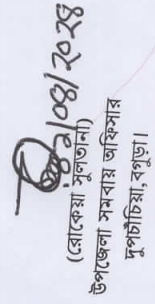 ২১/০৪/২০২৪
(রোকেয়া সুলতানা)
উপজেলা সমবায় অফিসার
দুপচাঁচিয়া, বগুড়া।